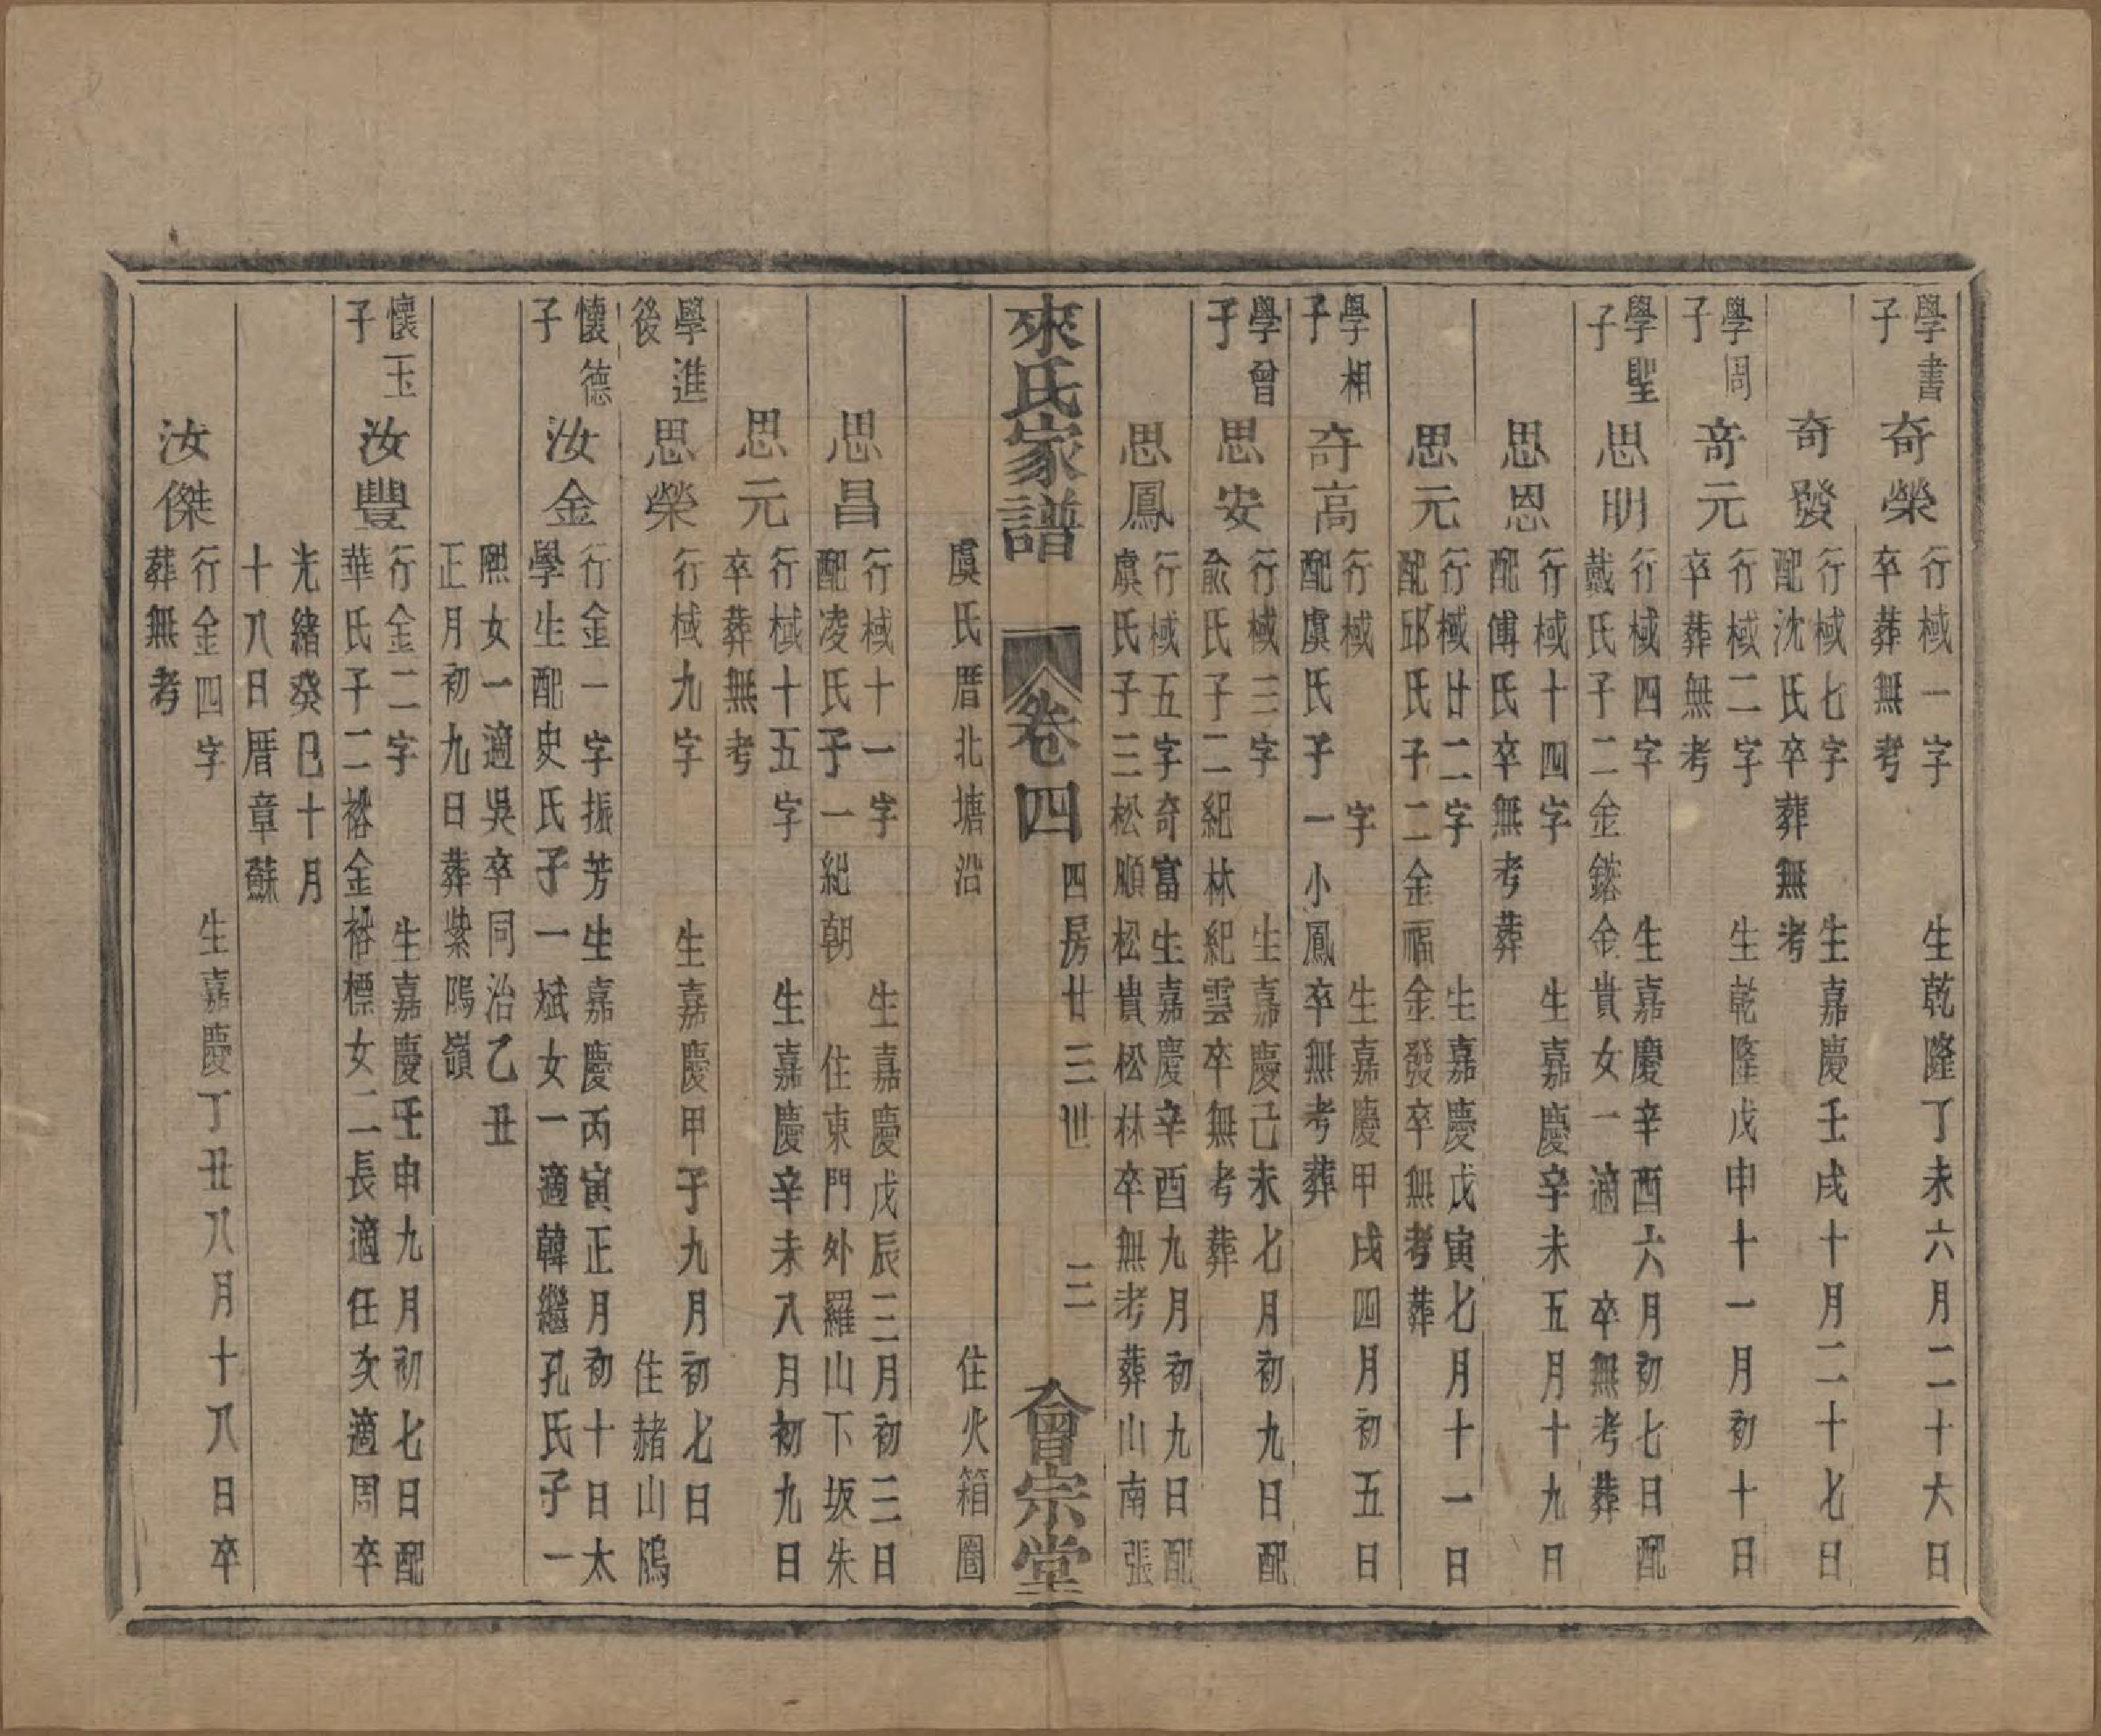 學書子
奇榮
行棫一字　生乾隆丁未六月二十六日
卒葬無考
奇發
行棫七字　生嘉慶壬戌十月二十七日
配沈氏卒葬無考
學周子
奇元
行棫二字　生乾隆戊申十一月初十日
卒葬無考
學聖子
思明
行棫四字　生嘉慶辛酉六月初七日配
戴氏子二金鎔金貴女一適　卒無考葬
思恩
行棫十四字　生嘉慶辛未五月十九日
配傅氏卒無考葬
思元
行棫廿二字　生嘉慶戊寅七月十一日
配邱氏子二金福金發卒無考葬
學相子
奇高
行棫　字　生嘉慶甲戌四月初五日
配虞氏子一小鳳卒無考葬
學曾子
思安
行棫三字　生嘉慶己未七月初九日配
俞氏子二紀林紀雲卒無考葬
思鳳
行棫五字奇富生嘉慶辛酉九月初九日配
虞氏子三松順松貴松林卒無考葬山南張
來氏家譜　卷四　四房廿三世　三　會宗堂
住火箱圖
虞氏厝北塘沿
思昌
行棫十一字　生嘉慶戊辰三月初三日
配凌氏子一紀朝　住東門外羅山下坂朱
思元
行棫十五字　生嘉慶辛未八月初九日
卒葬無考
學進後
思榮
行棫九字　生嘉慶甲子九月初七日
住赭山隖
懷德子
汝金
行金一字振芳生嘉慶丙寅正月初十日太
學生配史氏子一斌女一適韓繼孔氏子一
熙女一適吳卒同治乙丑
正月初九日葬紫隖嶺
懷玉子
汝豐
行金二字　生嘉慶壬申九月初七日配
華氏子二裕金裕標女二長適任次適周卒
光緒癸巳十月
十八日厝章蘇
汝傑
行金四字　生嘉慶丁丑八月十八日卒
葬無考